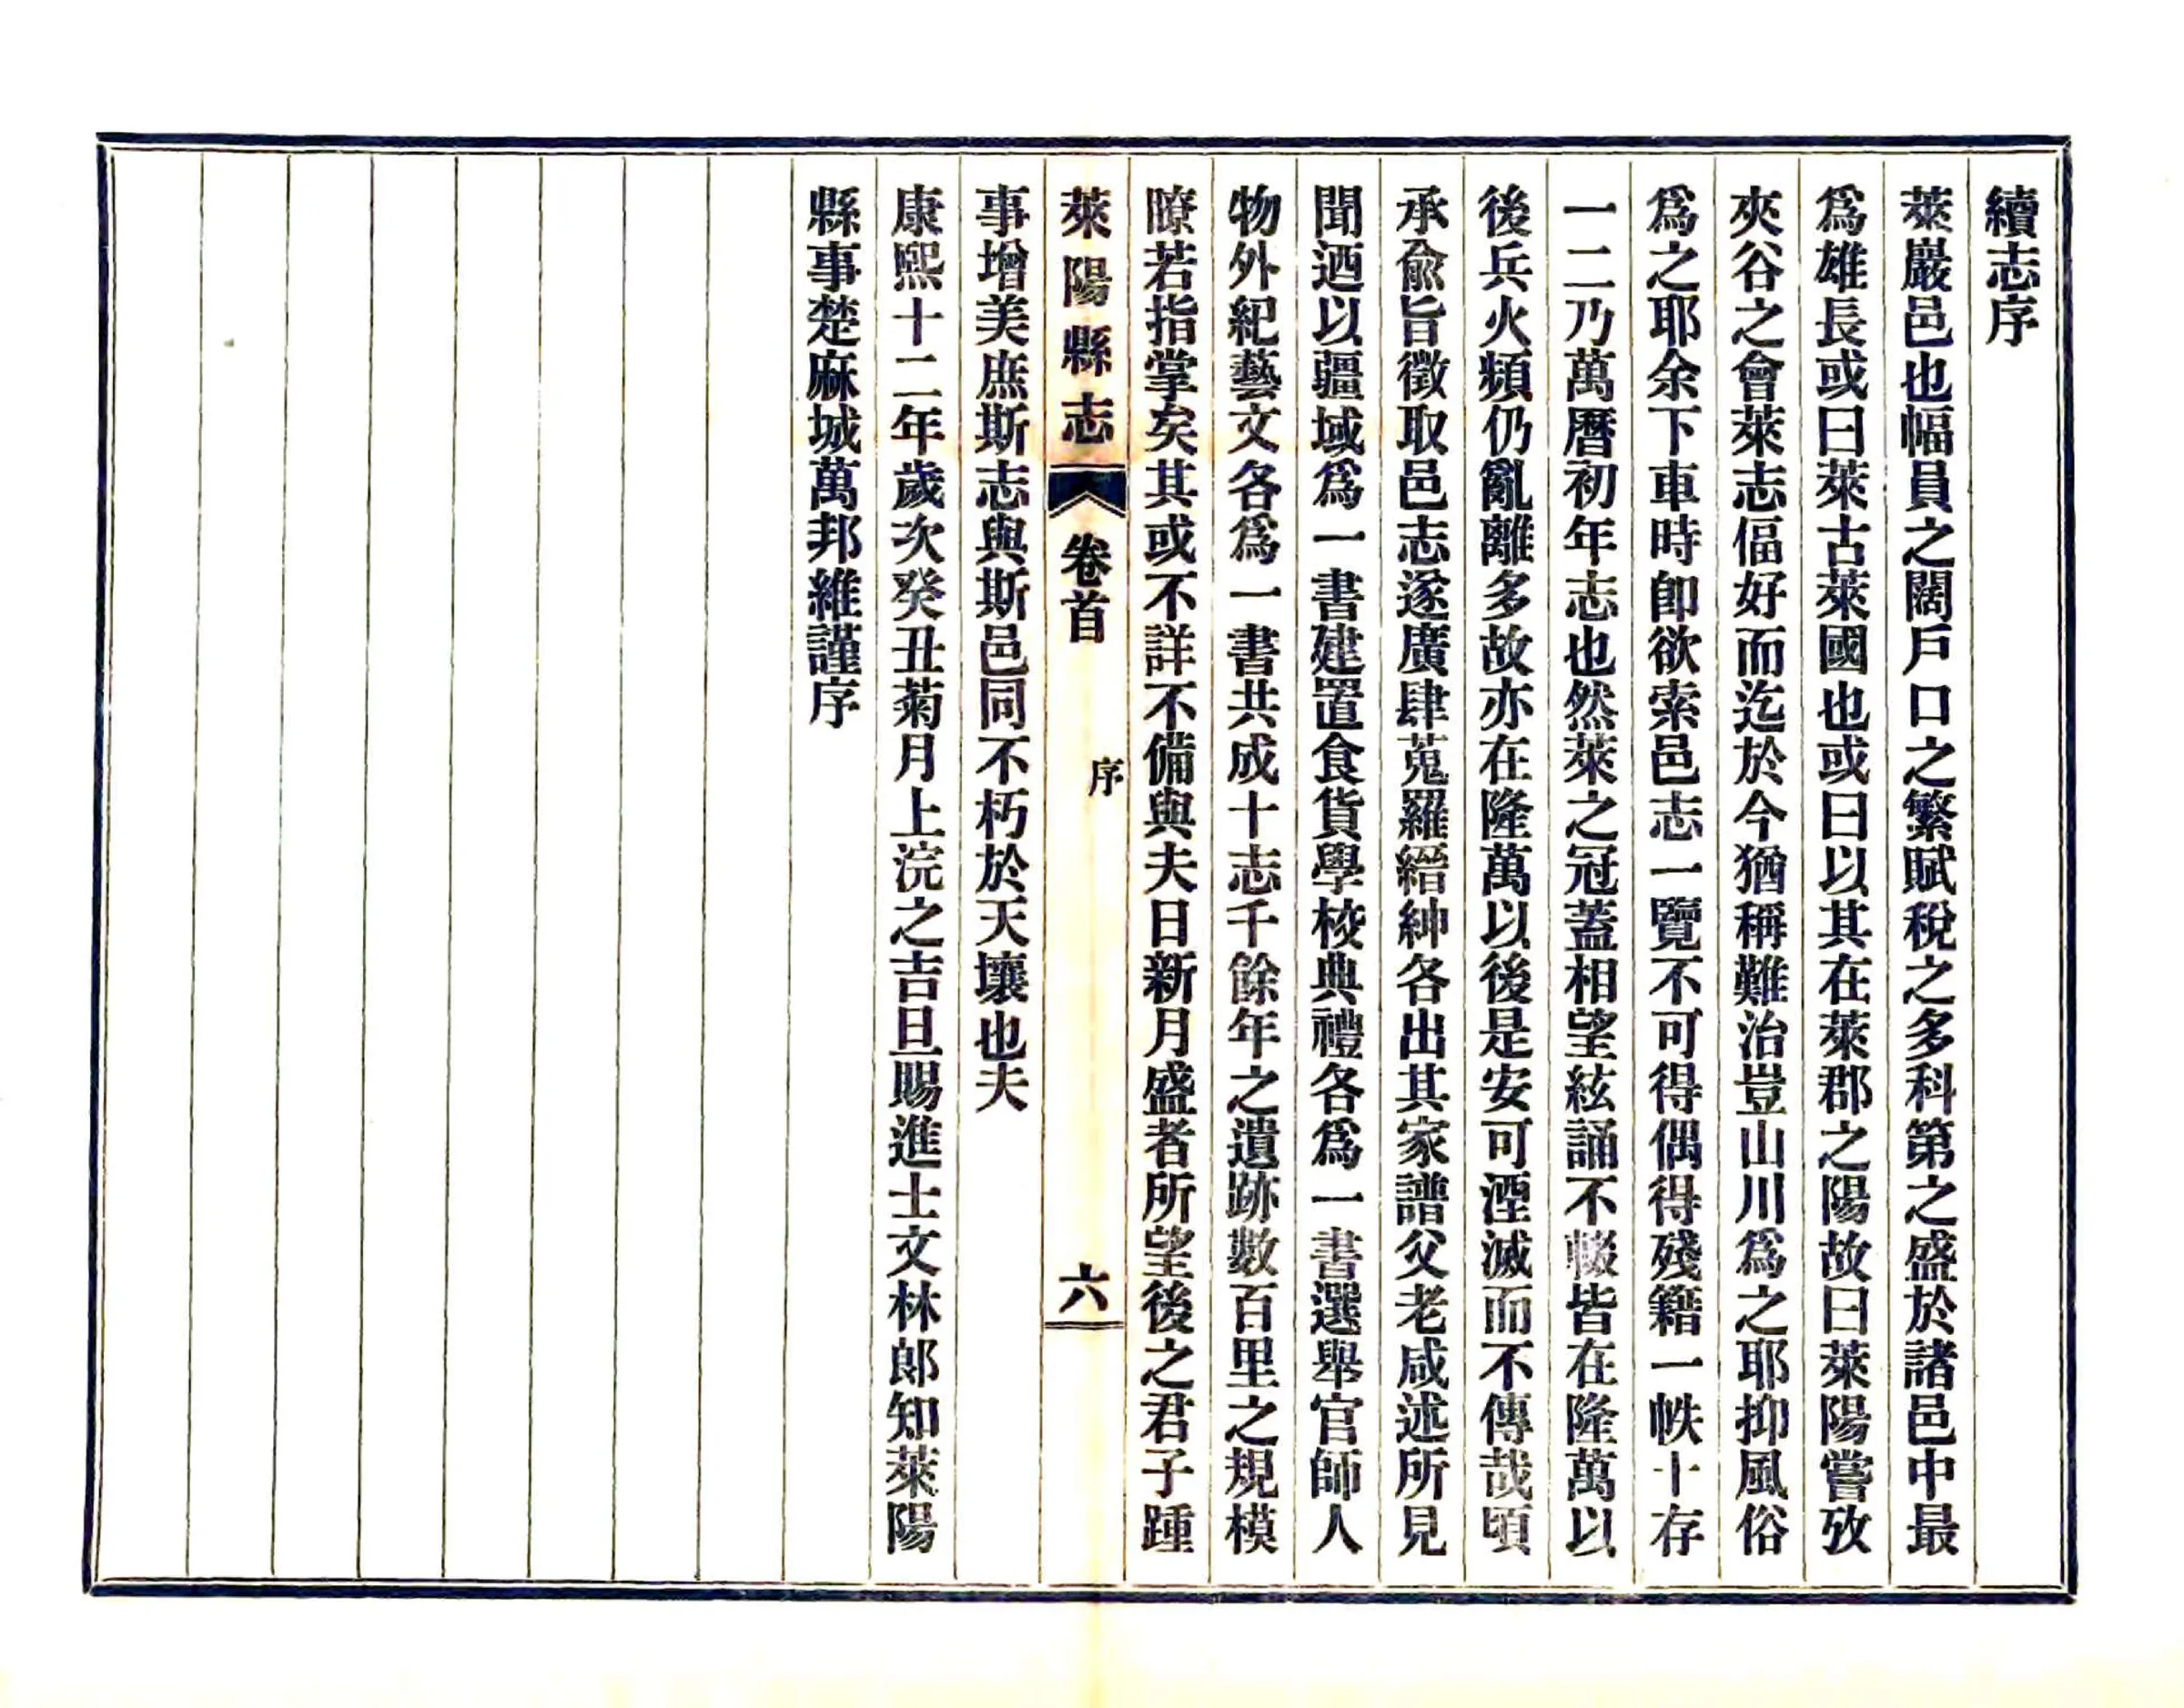 續志序
萊巖邑也幅員之闊戶口之繁賦稅之多科第之盛於諸邑中最
爲雄長或曰萊古萊國也或曰以其在萊郡之陽故曰萊陽嘗攷
夾谷之會萊志偪好而迄於今猶稱難治豈山川爲之耶抑風俗
爲之耶余下車時卽欲索邑志一覽不可得偶得殘籍一帙十存
一二乃萬曆初年志也然萊之冠蓋相望絃誦不輟皆在隆萬以
後兵火頻仍亂離多故亦在隆萬以後是安可湮滅而不傳哉頃
承兪旨徵取邑志遂廣肆蒐羅縉紳各出其家譜父老咸述所見
聞迺以疆域爲一書建置食貨學校典禮各爲一書選舉官師人
物外紀藝文各爲一書共成十志千餘年之遺跡數百里之規模
瞭若指掌矣其或不詳不備與夫日新月盛者所望後之君子踵
萊陽縣志 卷首 序 六
事增美庶斯志與斯邑同不朽於天壤也夫
康熙十二年歲次癸丑菊月上浣之吉旦賜進士文林郎知萊陽
縣事楚麻城萬邦維謹序